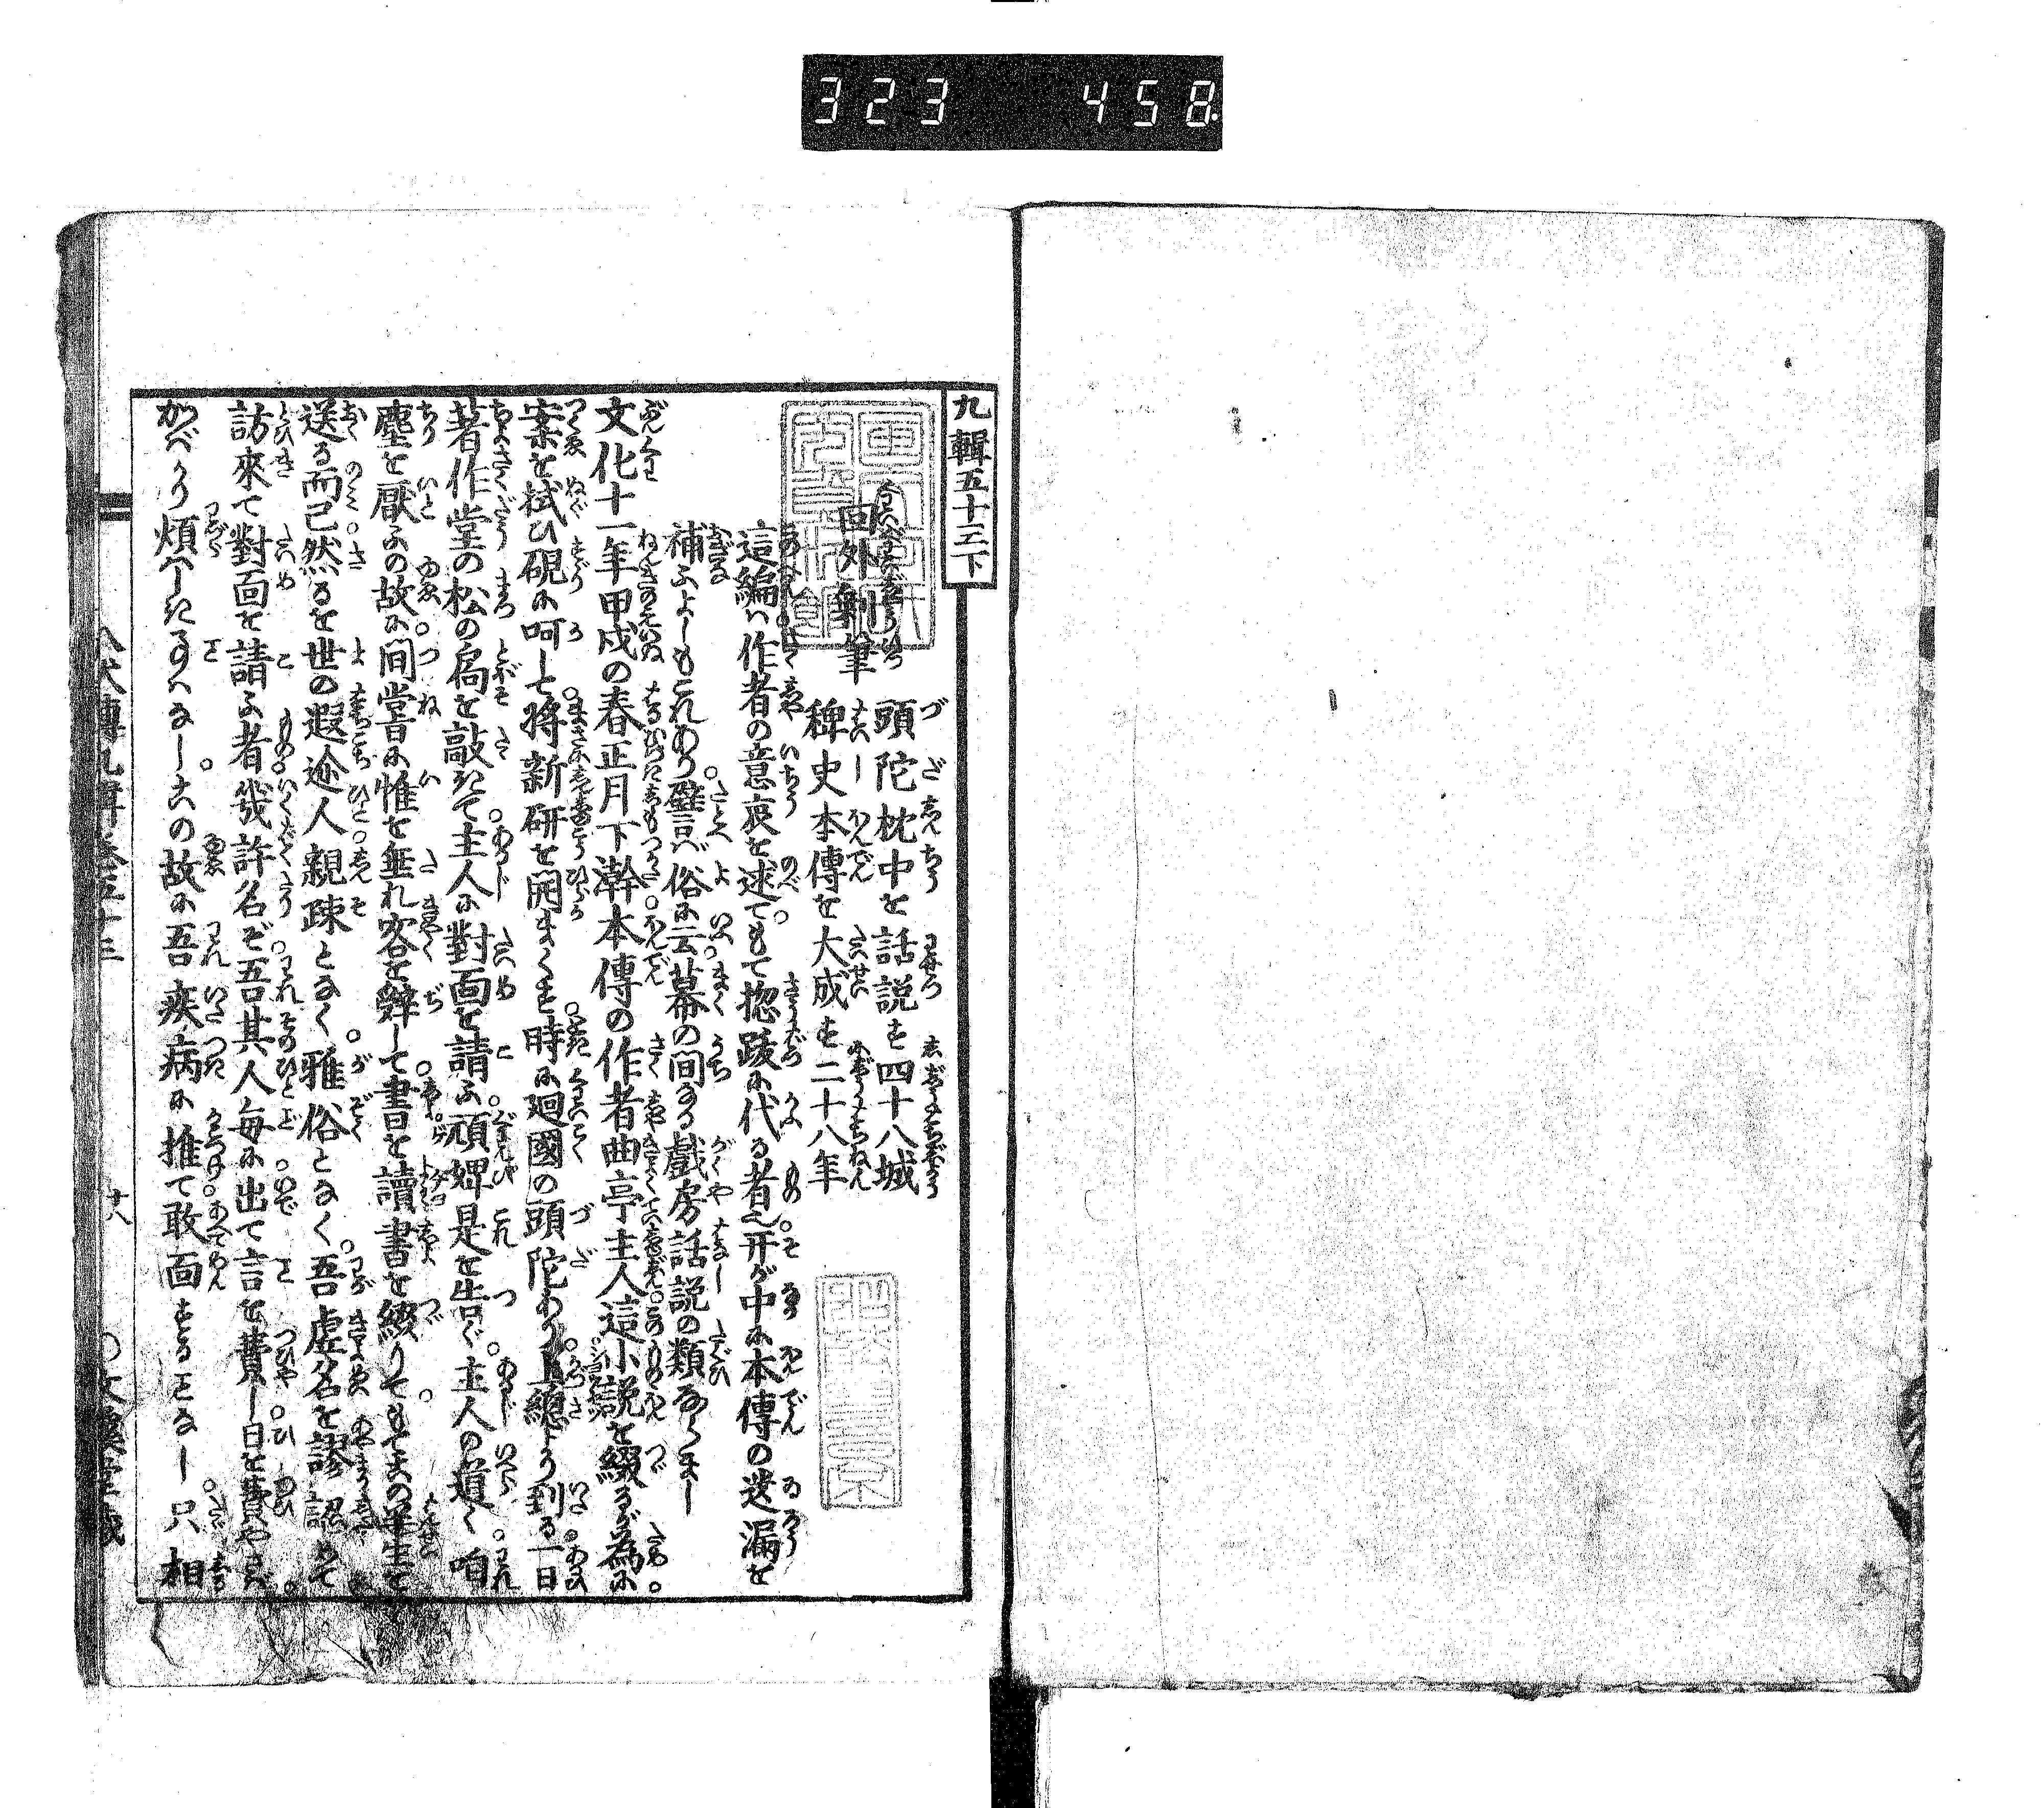 323 458
九輯五十三下
回外剰筆
頭陀枕中を話説す四十八城
稗史本傳を大成す二十八年
這編ハ作者の意衷を述てもて揔跋に代る者也开が中に本傳の遺漏を
補ふよしもこれあり譬ば俗に云幕の間なる戯房話説の類ならまし
文化十一年甲戌の春正月下澣本傳の作者曲亭主人這小説を綴るが為に
案を拭ひ硯に呵して將新研を開まくす時に廻國の頭陀あり上總より到る一日
著作堂の松の扃を敲きて主人に對面を請ふ頑婢是を告ぐ主人の道く咱
塵を厭ふの故に間嘗に惟を垂れ客を辭して書を讀書を綴りてもて
送る而已然るを世の遐迩人親疎となく雅俗となく吾虚名を謬認めて
訪來て對面を請ふ者幾許名ぞ吾其人毎に出て言を費し日を費やさバ
煩ハしきのミならず故に吾疾病に推て敢面することなし只相
八犬傳九輯巻五十三
廿八